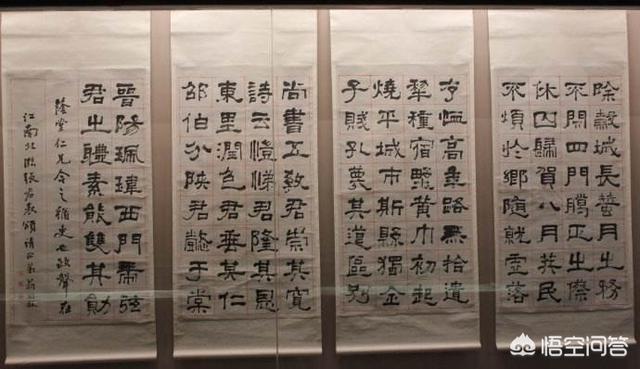 除穀城長蠶月之務
不閉四門騰正之傺
休囚歸賀八月筭民
不煩於鄉隨就虛落
存恤高年路無拾遺
犂種宿野黃巾初起
燒平城市斯縣獨全
子賤孔蔑其道區別
尚書五教君崇其寬
詩云愷悌君隆其恩
東里潤色君垂其仁
邵伯分陝君懿于棠
晉陽珮瑋西門帶弦
君之體素能雙其勛
堂仁兄今之循吏也政聲在
江南北張君表頌請正弟
悟空问答